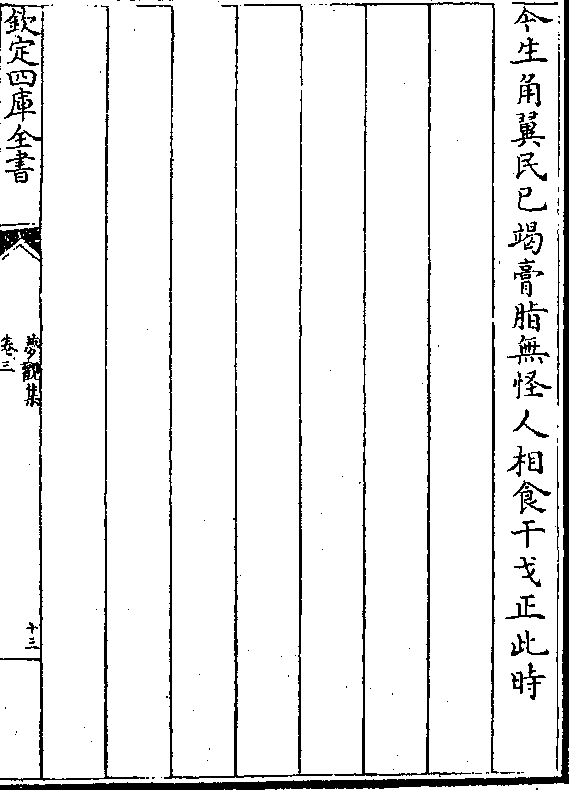 今生角翼民已竭膏脂無怪人相食干戈正此時
欽定四庫全書
夢觀集
卷三
十三